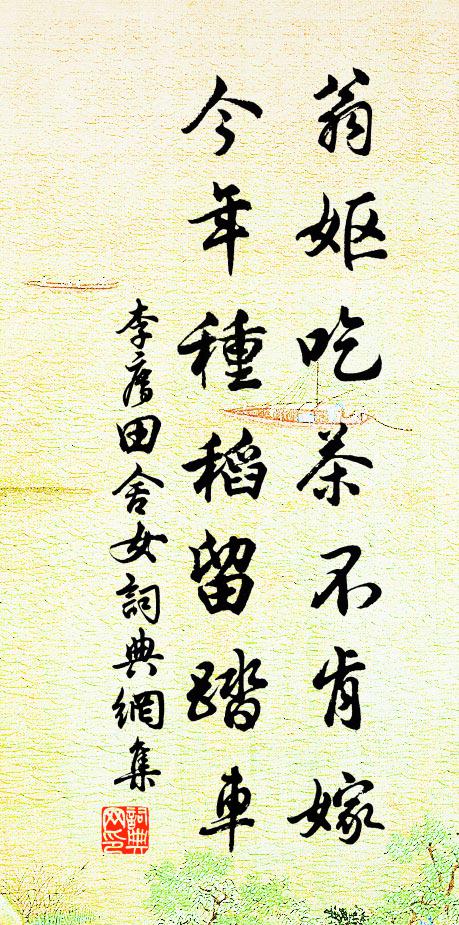 翁嫗吃茶不肯嫁
今年種稻留踏車
李廌田舍女詞典網集
詞典網印